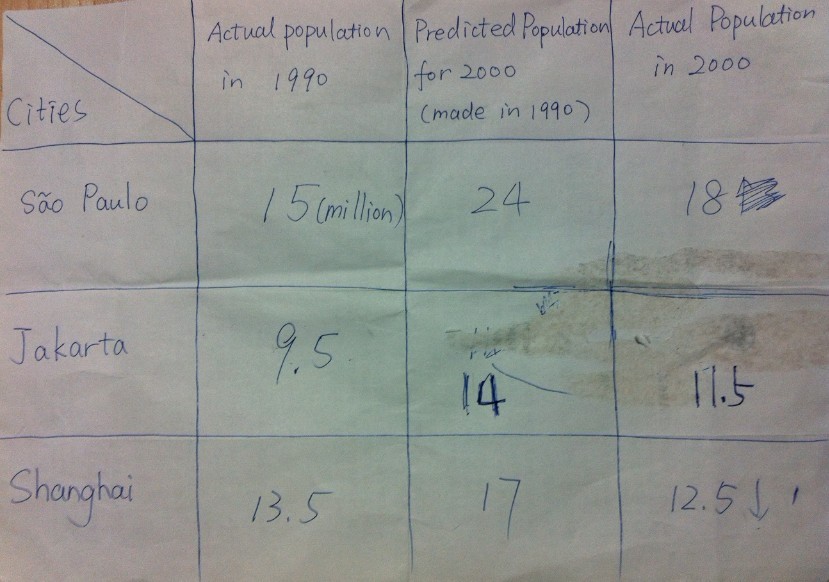 Actual population
in 1990
Predicted Population
for 2000
(made in 1990)
Actual Population
in 2000
Cities
São Paulo
15 (million)
24
18
Jakarta
9.5
14
11.5
Shanghai
13.5
17
12.5↓